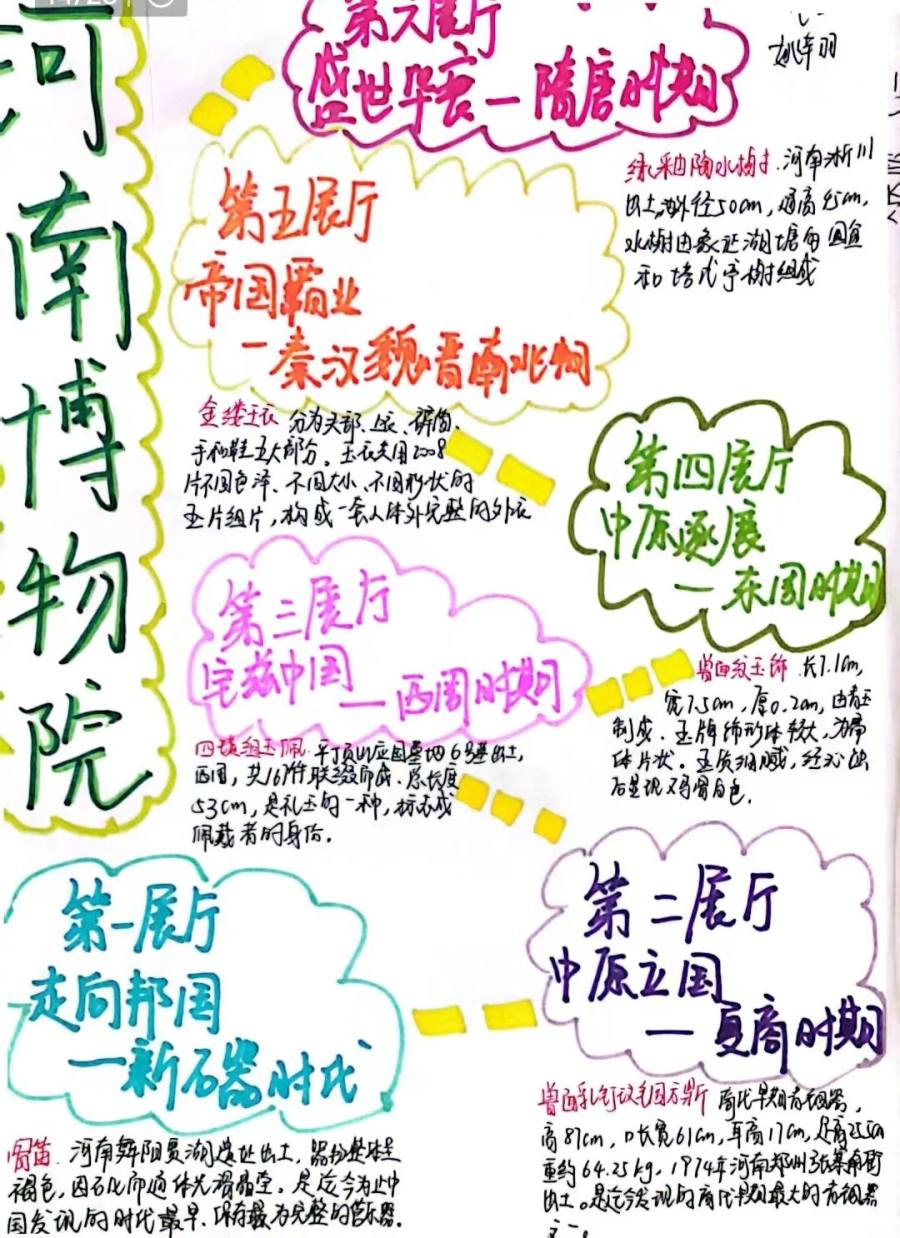 河南博物院
第六展厅
盛世华衰—隋唐时期
绿釉陶水榭.河南淅川
出土,外径50cm,通高45cm,
水榭由象征湖塘的圆盆
和塔式亭榭组成
第五展厅
帝国霸业
—秦汉魏晋南北朝
金缕玉衣 分为头部、上衣、裤筒、
手和鞋五大部分。玉衣共用2008
片不同色泽、不同大小、不同形状的
玉片组片,构成一套人体外完整的外衣
第四展厅
中原逐展
—东周时期
兽面纹玉饰 长7.1cm,
宽7.5cm,厚0.2cm,由青玉
制成. 玉牌饰形体较大,为扁
体片状。玉质细腻,经沁蚀
后呈现鸡骨白色.
第三展厅
宅兹中国
—西周时期
四璜组玉佩 平顶山应国墓地6号墓出土,
西周,共167件联缀而成.总长度
53cm,是礼玉的一种,标志或
佩戴者的身份.
第二展厅
中原立国
—夏商时期
兽面乳钉纹毛国方鼎 商代早期青铜器,
高87cm,口长宽61cm,耳高17cm,足高25cm
重约64.25kg,1974年河南郑州张寨南街
出土。是迄今发现的商代早期最大的青铜器
之一。
第一展厅
走向邦国
—新石器时代
骨笛.河南舞阳贾湖遗址出土,器物整体呈
褐色,因石化而通体光滑晶莹.是迄今为止中
国发现的时代最早.保存最为完整的管乐器.